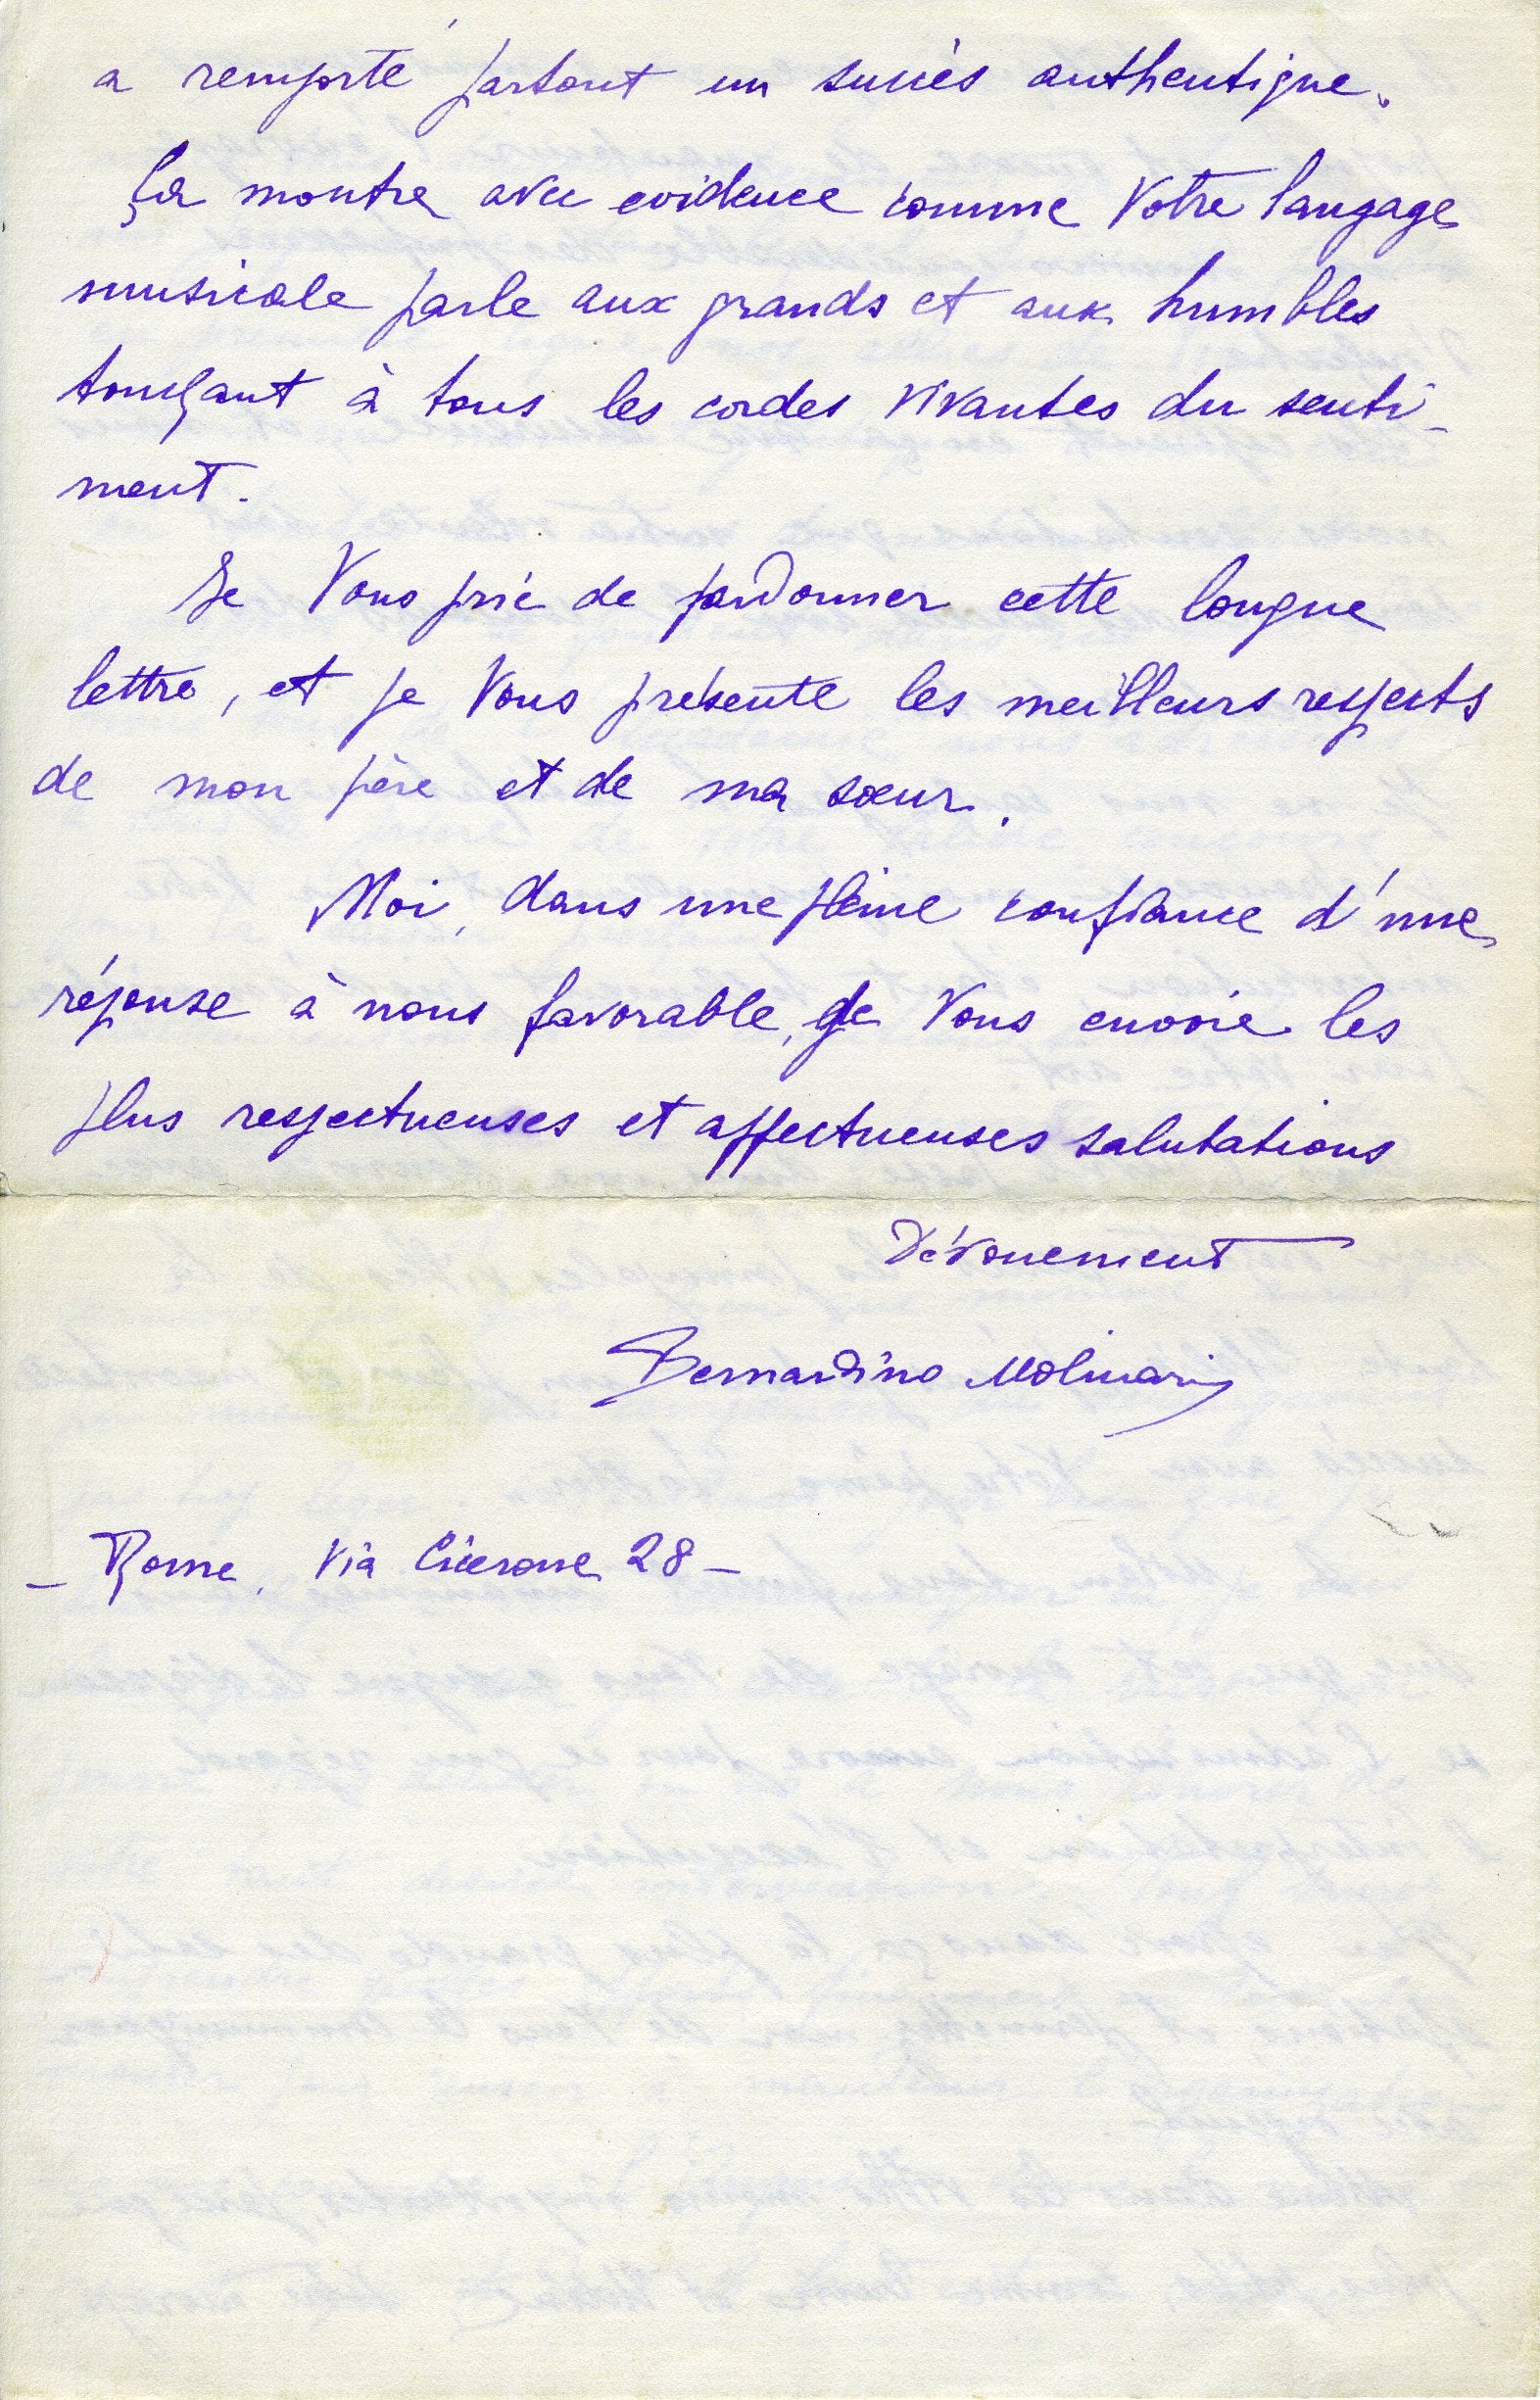 a remporté partout un succès authentique.
Ça montre avec evidence comme Votre langage
musicale parle aux grands et aux humbles
touchant à tous les cordes vivantes du senti-
ment.
Je Vous prie de pardonner cette longue
lettre, et je Vous présente les meilleurs respects
de mon père et de ma sœur.
Moi, dans une pleine confiance d'une
réponse à nous favorable, je Vous envoie les
plus respectueuses et affectueuses salutations
Dévouement
Bernardino Molinari
- Rome, Via Cicerone 28 -